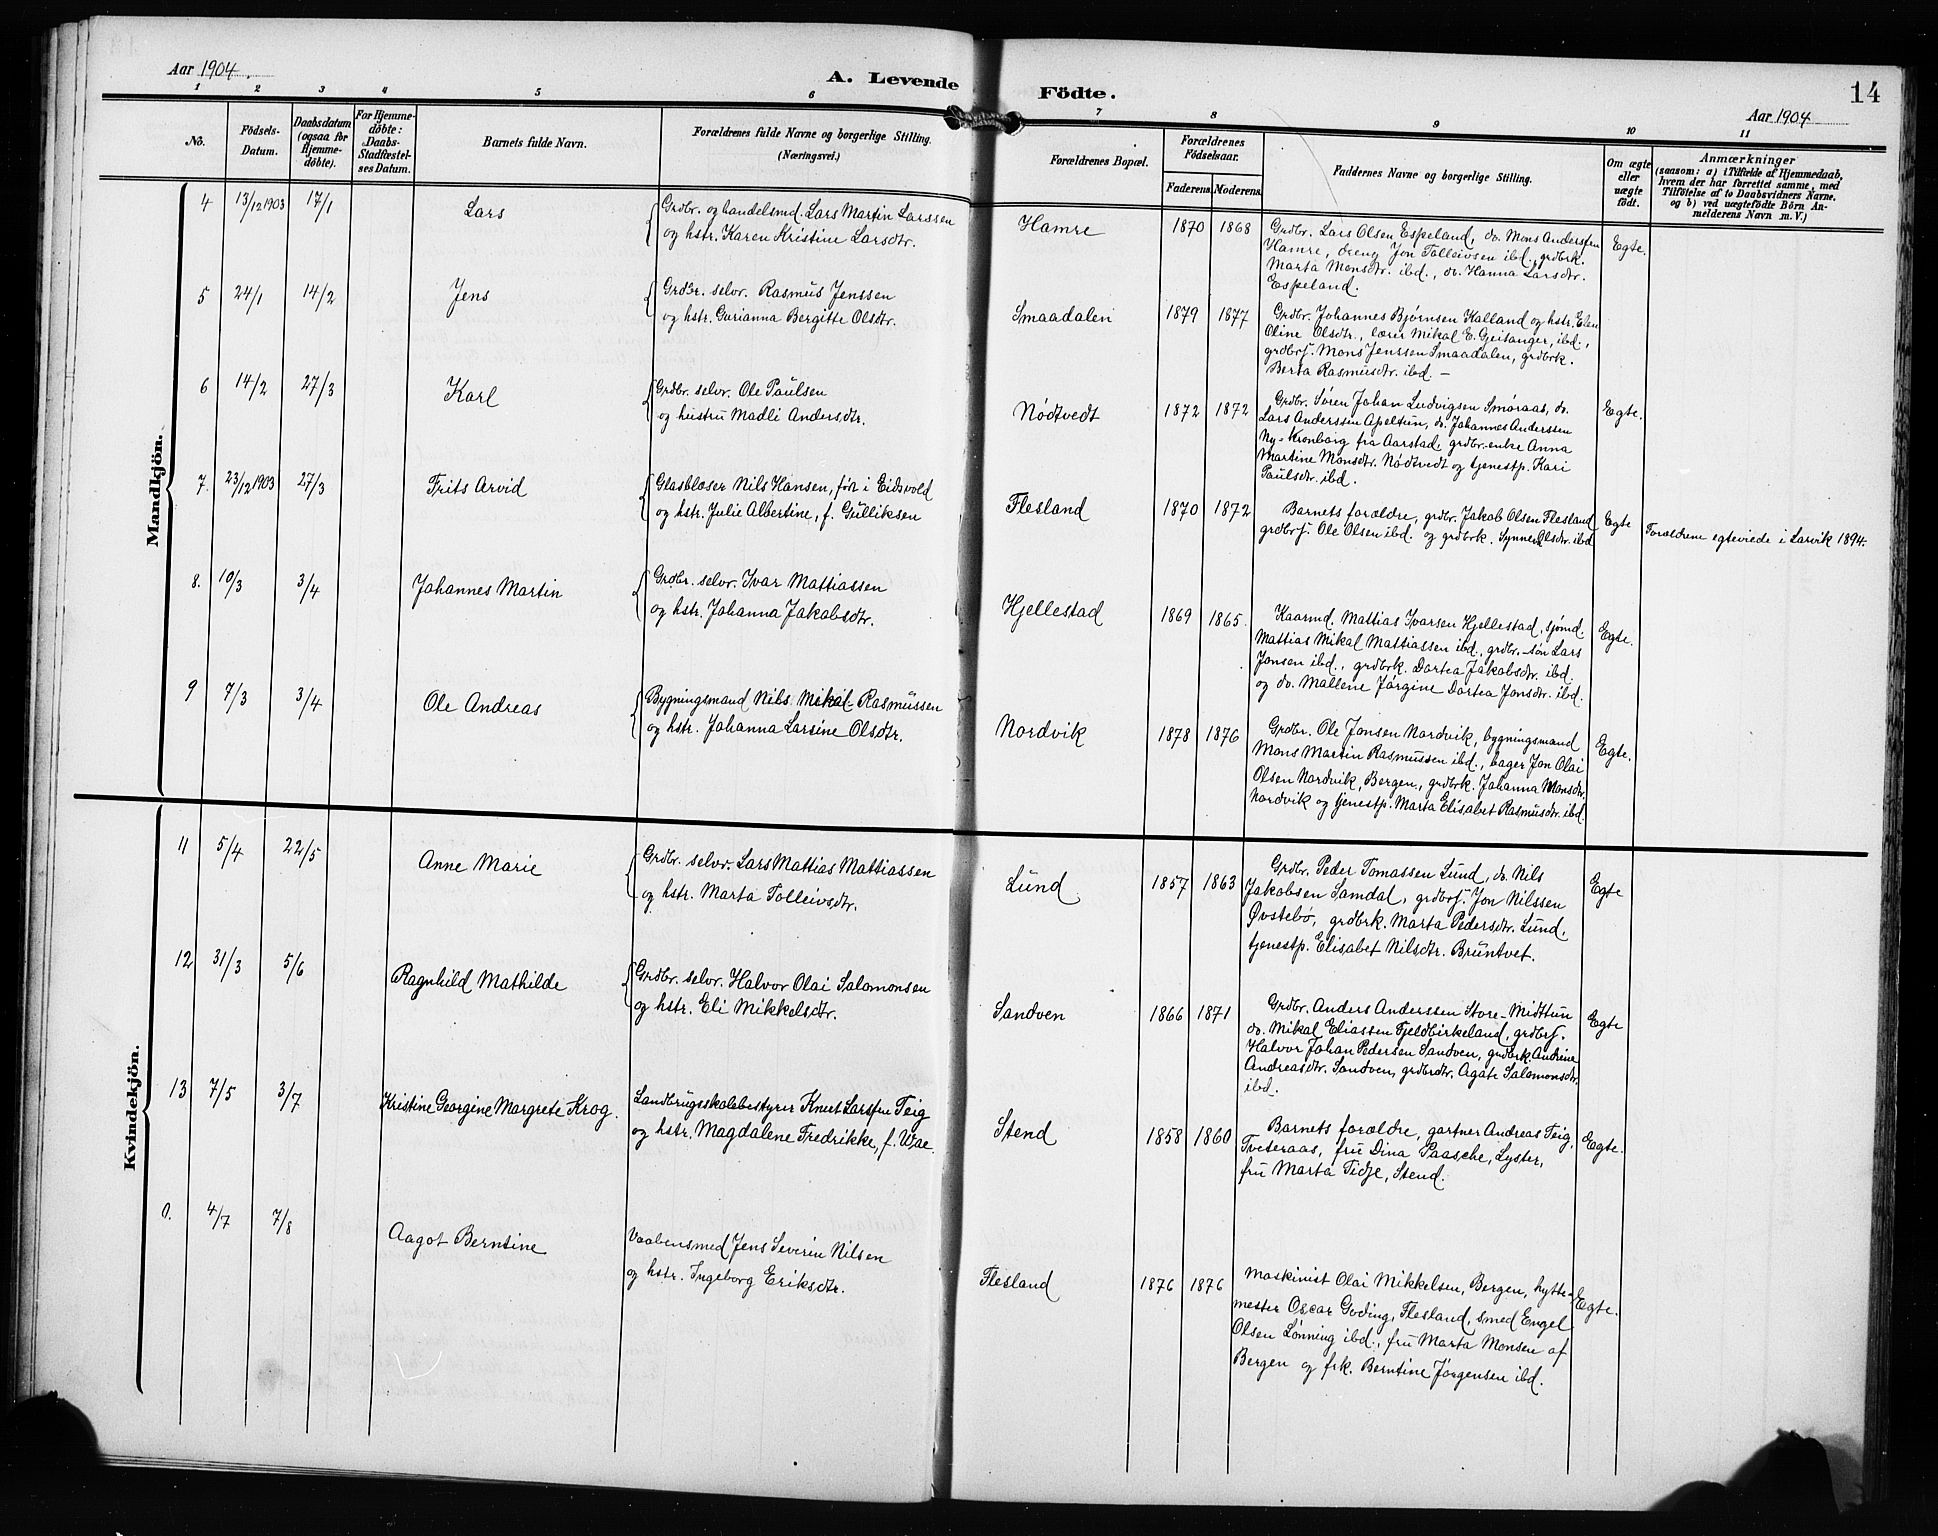 Aar 1904.
A. Levende Födte.
14
Aar 1904
1 2 3 4 5 6 7 8 9 10 11
No.
Födsels-
Datum.
Daabsdatum
(ogsaa for
Hjemme-
döbte).
For Hjemme-
döbte:
Daabs-
Stadfæstel-
ses Datum.
Barnets fulde Navn.
Forældrenes fulde Navne og borgerlige Stilling.
(Næringsvei.)
Forældrenes Bopæl.
Forældrenes
Födselsaar.
Faderens. Moderens.
Faddernes Navne og borgerlige Stilling.
Om ægte
eller
uægte
födt.
Anmærkninger
(saasom: a) i Tilfælde af Hjemmedaab,
hvem der har forrettet samme, med
Tilföielse af to Daabsvidners Navne,
og b) ved uægtefödte Börn An-
melderens Navn m. V.)
Mandkjön.
4 13/12 1903 17/1 Lars
Grdbr. og handelsmd. Lars Martin Larssen
og hstr. Karen Kristine Larsdtr.
Hamre 1870 1868
Grdbr. Lars Olsen Espeland, do. Mons Anderssen
Hamre, dreng Jon Tolleivsen ibd., grdbrk.
Marta Monsdtr. ibd., do. Hanna Larsdtr.
Espeland.
Egte.
5 24/1 14/2 Jens
Grdbr. selv. Rasmus Jenssen
og hstr. Gurianna Bergitte Olsdtr.
Smaadalen 1879 1877
Grdbr. Johannes Bjørnsen Kalland og hstr. Elen
Oline Olsdtr., lærer Mikal E. Geitanger, ibd.,
grdbrs. Mons Jenssen Smaadalen, grdbrk.
Berta Rasmusdtr. ibd. –
6 14/2 27/3 Karl
Grdbr. selv. Ole Paulsen
og hustru Madli Andersdtr.
Nödtvedt 1872 1872
Grdbr. Søren Johan Ludvigsen Smøraas, do.
Lars Anderssen Apeltun, do. Johannes Anderssen
Ny-Kronborg fra Aarstad, grdbr.-enke Anna
Martine Monsdtr. Nødtvedt og tjenestp. Kari
Paulsdtr. ibd.
Egte.
7. 23/12 1903 27/3 Frits Arvid
Glasblæser Nils Hansen, født i Eidsvold
og hstr. Julie Albertine, f. Gulliksen
Flesland 1870 1872
Barnets forældre, grdbr. Jakob Olsen Flesland
grdbrs. Ole Olsen ibd. og grdbrk. Synneva Olsdtr. ibd
Egte
Forældrene egteviede i Larvik 1894.
8. 10/3 3/4 Johannes Martin
Grdbr. selv. Ivar Mattiassen
og hstr. Johanna Jakobsdtr.
Hjellestad 1869 1865.
Kaarmd. Mattias Ivarsen Hjellestad, sjømd.
Mattias Mikal Mattiassen ibd., grdbr.-søn Lars
Jonsen ibd., grdbrk. Dortea Jakobsdtr. ibd.
og do. Mallene Jørgine Dortea Jonsdtr. ibd.
Egte.
9 7/3 3/4 Ole Andreas
Bygningsmand Nils Mikal Rasmussen
og hstr. Johanna Larsine Olsdtr.
Nordvik 1878 1876
Grdbr. Ole Jonsen Nordvik, bygningsmand
Mons Martin Rasmussen ibd., bager Jon Olai
Olsen Nordvik, Bergen, grdbrk. Johanna Monsdtr.
Nordvik og tjenestp. Marta Elisabet Rasmusdtr. ibd.
Egte.
Kvindekjön.
11 5/4 22/5 Anne Marie
Grdbr. selv. Lars Mattias Mattiassen
og hstr. Marta Tolleivsdtr.
Lund 1857 1863
Grdbr. Peder Tomassen Lund, do. Nils
Jakobsen Samdal, grdbrs. Jon Nilssen
Øvstebø, grdbrk. Marta Pedersdtr. Lund,
tjenestp. Elisabet Nilsdtr. Bruntvet.
Egte
12 31/3 5/6 Ragnhild Mathilde
Grdbr. selv. Halvor Olai Salomonsen
og hstr. Eli Mikkelsdtr.
Sandven 1866 1871
Grdbr. Anders Anderssen Store-Midttun
do. Mikal Eliassen Fjeldbirkeland, grdbrs.
Halvor Johan Pedersen Sandven, grdbrk Andrine
Andreasdtr. Sandven, grdbrdtr. Agate Salomonsdtr.
ibd.
Egte
13 7/5 3/7 Kristine Georgine Margrete Krog.
Landbrugsskolebestyrer Knut Larssen Teig
og hstr. Magdalene Fredrikke, f. Wae.
Stend 1858 1860
Barnets forældre, gartner Andreas Teig,
Tveteraas, fru Dina Paasche, Lyster,
fru Marta Tidje, Stend.
Egte.
4/7 7/8 Aagot Berntine
Vaabensmed Jens Severin Nilsen
og hstr. Ingeborg Eriksdtr.
Flesland 1876 1876
Maskinist Olai Mikkelsen, Bergen, hytte-
mester Oscar Goding, Flesland, smed Engel
Olsen Lønning ibd., fru Marta Monsen af
Bergen og frk. Berntine Jørgensen ibd.
Egte.